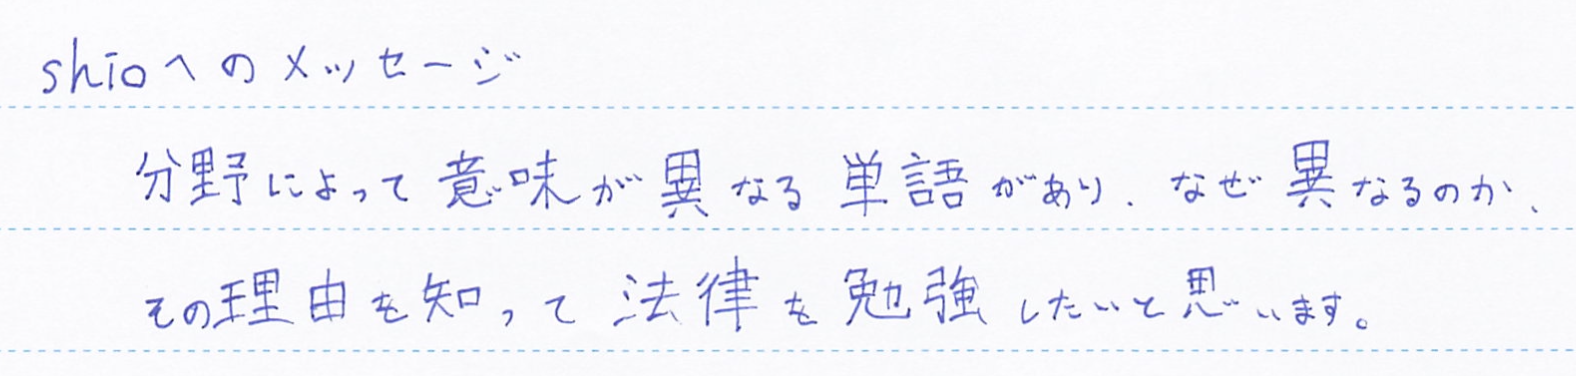 shioへのメッセージ
分野によって意味が異なる単語があり、なぜ異なるのか、
その理由を知って法律を勉強したいと思います。